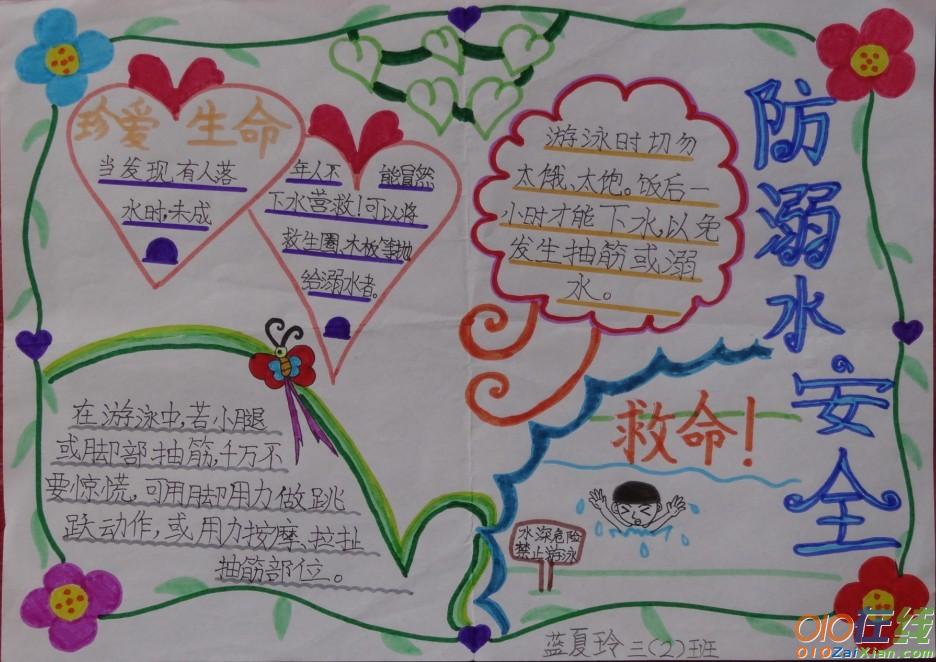 珍爱 生命
当发现有人落
水时,未成
年人不 能冒然
下水营救!可以将
救生圈、木板等抛
给溺水者。
游泳时切勿
太饿、太饱。饭后一
小时才能下水,以免
发生抽筋或溺
水。
防溺水安全
在游泳中,若小腿
或脚部抽筋,千万不
要惊慌,可用脚用力做跳
跃动作,或用力按摩、拉扯
抽筋部位。
救命!
水深危险
禁止游泳
蓝夏玲 三(2)班
010在线
010ZaiXian.com